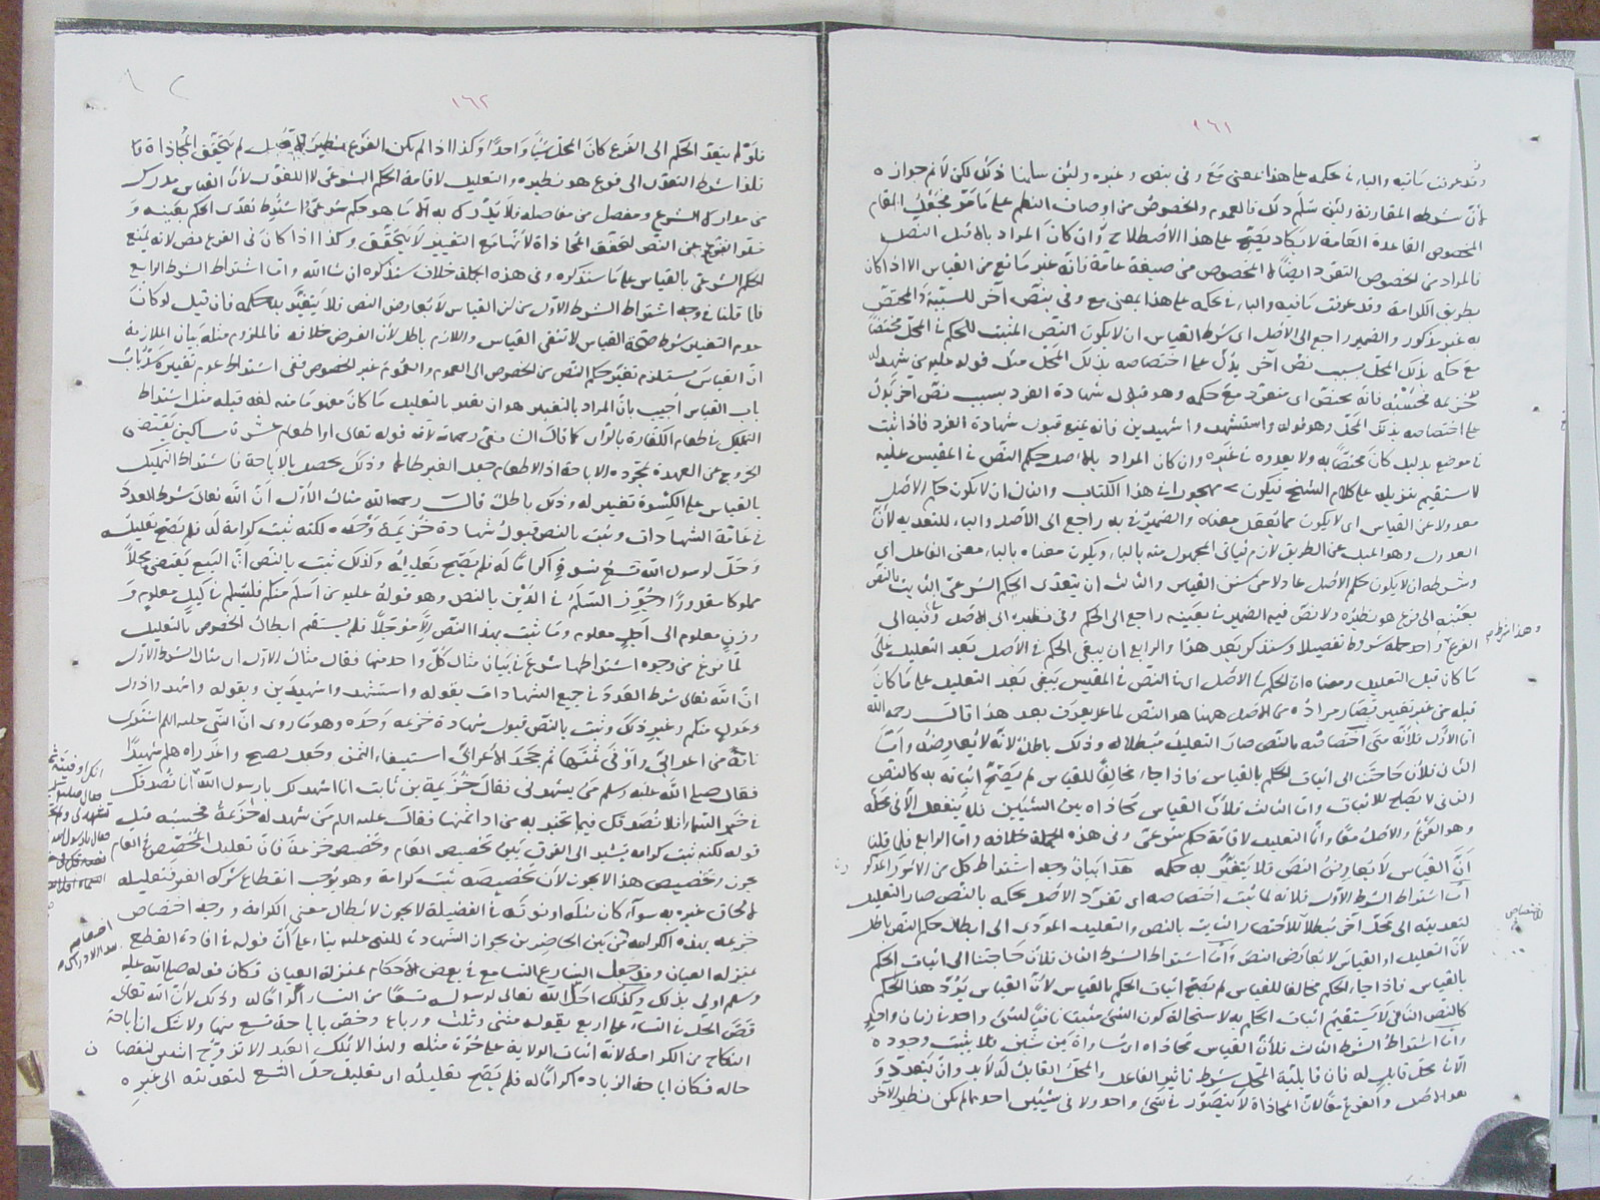 ١٦١
وقد عرفت ثانيه والباء في حكمه على هذا بمعنى مع وفي بنص وغيره ولئن سلمنا ذلك لكن لانم جوازه
لأن شرطه المقارنة ولئن سلم ذلك فالعموم والخصوص من اوصاف النظم على ما مر فحينئذ المقام
المخصوص القاعدة العامة لا يكاد يصح على هذا الاصطلاح وان كان المراد بالاصل النص
فالمراد من الخصوص التفرد ايضا لا المخصوص من صيغة عامة فانه غير مانع من القياس الا اذا كان
بطريق الكرامة وقد عرفت ثانيه والباء في حكمه على هذا بمعنى مع وفي بنص آخر للسببية والمختص
به غير مذكور والضمير راجع الى الاصل اى شرط القياس ان لا يكون النص المثبت للحكم في المحل مختصا
مع حكمه بذلك المحل بسبب نص آخر يدل على اختصاصه بذلك المحل مثل قوله عليه من شهد له
خزيمة فحسبه فانه مختص اى متفرد مع حكمه وهو قبول شهادة الفرد بسبب نص آخر يدل
على اختصاصه بذلك المحل وهو قوله واستشهدوا شهيدين فانه يمنع قبول شهادة الفرد فاذا ثبت
في موضع بدليل كان مختصا به ولا يعدوه الى غيره وان كان المراد بالاصل حكم النص في المقيس عليه
لا يستقيم تنزيله على كلام الشيخ فيكون في هذا الكتاب والثاني ان لا يكون حكم الاصل
معدولا عن القياس اى لا يكون مما يعقل معناه والضمير في به راجع الى الاصل والباء للتعدية لأن
العدول وهو الميل عن الطريق لازم فيأتي المجهول منه بالباء ويكون معناه بالباء معنى الفاعل اى
وشرطه ان لا يكون حكم الاصل عادلا عن سنن القياس والثالث ان يتعدى الحكم الشرعي الثابت بالنص
بعينه الى فرع هو نظيره ولا نص فيه الضمير في بعينه راجع الى الحكم وفي نظيره الى الاصل وفيه الى
الفرع وهذا شرط واحد جملة شروط تفصيلا وسنذكر بعد هذا والرابع ان يبقى الحكم في الاصل بعد التعليل على
ما كان قبل التعليل ومعناه ان الحكم في الاصل اى في النص في المقيس يبقى بعد التعليل على ما كان
قبله من غير تغيير فصار مراده من الاصل ههنا هو النص لما يعرف بعد هذا قال رحمه الله
اما الاول فلأنه متى اختصاصه بالنص صار التعليل مبطلا له وذلك باطل لأنه لا يعارضه واما
الثاني فلأن حاجتنا الى اثبات الحكم بالقياس فاذا جاء مخالفا للقياس لم يصح اثباته به كالنص
النافي لا يصلح للاثبات واما الثالث فلأن القياس محاذاة بين الشيئين فلا ينفعل الا في محله
وهو الفرع والاصل معا وانما التعليل لاقامة حكم شرعي وفي هذه الجملة خلاف واما الرابع فلما قلنا
ان القياس لا يعارض النص فلا يتغير به حكمه هذا بيان وجه اشتراط كل من الامور المذكورة
اما اشتراط الشرط الاول فلأنه لما ثبت اختصاصه اى تفرد الاصل بحكمه بالنص صار التعليل
لتعديته الى محل آخر مبطلا للاختصاص الثابت بالنص والتعليل المؤدي الى ابطال حكم النص باطل
لأن التعليل او القياس لا يعارض النص واما اشتراط الشرط الثاني فلأن حاجتنا الى اثبات الحكم
بالقياس فاذا جاء الحكم مخالفا للقياس لم يصح اثبات الحكم بالقياس لأن القياس يرد هذا الحكم
كالنص النافي لا يستقيم اثبات الحكم به لاستحالة كون الشئ مثبتا نافيا لشئ واحد في زمان واحد
واما اشتراط الشرط الثالث فلأن القياس محاذاة اى مساواة بين شيئين فلا يثبت وجوده
الا في محل قابل له فان قابلية المحل شرط تأثير الفاعل والمحل القابل له لا بد وان يتعدد و
هو الاصل والفرع معا لأن المحاذاة لا يتصور في شئ واحد ولا في شيئين احدهما لم يكن نظير الآخر
وهذا شرط
الاختصاص
١٦٢
فلو لم يتعد الحكم الى الفرع كان المحل شيئا واحدا وكذا اذا لم يكن الفرع نظير لم يتحقق المحاذاة
فلذا شرط التعدي الى فرع هو نظيره والتعليل لاقامة الحكم الشرعي لا اللغوي لأن القياس مدرك
من مدارك الشرع ومفصل من مفاصله فلا يدرك به الا ما هو حكم شرعي واشترط تعدى الحكم بعينه و
خلو الفرع عن النص لتحقق المحاذاة لأنها مع التغيير لا يتحقق وكذا اذا كان في الفرع نص لأنه يمنع
الحكم الشرعي بالقياس على ما سنذكره وفي هذه الجملة خلاف سنذكره ان شا الله واما اشتراط الشرط الرابع
فلما قلنا في وجه اشتراط الشرط الاول من ان القياس لا يعارض النص فلا يتغير به حكمه فان قيل لو كان
عدم التغيير شرط صحة القياس لانتفى القياس واللازم باطل لأن الفرض خلافه فالملزوم مثله بيان الملازمة
ان القياس مستلزم تغير حكم النص من الخصوص الى العموم والعموم غير الخصوص ففي اشتراط عدم تغييره سد باب
باب القياس اجيب بان المراد بالتغيير هو ان يغير بالتعليل ما كان مفهوما منه لغة قبله مثل اشتراط
التمليك في طعام الكفارة بالراى كما قال الشافعي رحمه الله لأنه قوله تعالى اطعام عشرة مساكين يقتضى
الخروج عن العهدة بمجرد الاباحة اذ الاطعام جعل الغير طاعما وذلك يحصل بالاباحة فاشتراط التمليك
بالقياس على الكسوة تغيير له وذلك باطل قال رحمه الله مثال الاول ان الله تعالى شرط العدد
في عامة الشهادات وثبت بالنص قبول شهادة خزيمة وحده لكنه ثبت كرامة له فلم يصح تعليله
وحل لرسول الله تسع نسوة اكراما له فلم يصح تعليله وكذلك ثبت بالنص ان البيع يقتضى محلا
مملوكا مقدورا وجوز السلم في الدين بالنص وهو قوله عليه من اسلم منكم فليسلم في كيل معلوم و
وزن معلوم الى اجل معلوم وما ثبت بهذا النص الا مؤجلا فلم يستقم ابطال الخصوص بالتعليل
لما فرغ من وجوه اشتراطها شرع في بيان مثال كل واحد منها فقال مثال الاول اى مثال الشرط الاول
ان الله تعالى شرط العدد في جميع الشهادات بقوله واستشهدوا شهيدين وبقوله واشهدوا ذوى
عدول منكم وغير ذلك وثبت بالنص قبول شهادة خزيمة وحده وهو ما روى ان النبي عليه السلم اشترى
ناقة من اعرابي واوفى ثمنها ثم جحد الاعرابي استيفاء الثمن وجعل يصيح واغدراه هلم شهيدا
فقال صلى الله عليه وسلم من يشهد لي فقال خزيمة بن ثابت انا اشهد لك يا رسول الله انا نصدقك
في خبر السماء افلا نصدقك فيما تخبر به من اداء ثمنها فقال عليه السلم من شهد له خزيمة فحسبه قيل
قوله لكنه ثبت كرامة يشير الى الفرق بين تخصيص العام وتخصيص خزيمة فان تعليل المخصص في العام
يجوز وتخصيص هذا لا يجوز لأن تخصيصه ثبت كرامة وهو يوجب انقطاع شركة الغير فتعليله
لالحاق غيره به سواء كان مثله او فوقه في الفضيلة لا يجوز لابطال معنى الكرامة ووجه اختصاص
خزيمة بهذه الكرامة من بين الحاضرين بجواز الشهادة للنبي عليه بناء على ان قوله في افادة القطع
بمنزلة العيان وقد جعل الشارع التسامع في بعض الاحكام بمنزلة العيان فكان قوله صلى الله عليه
وسلم اولى بذلك وكذلك احل الله تعالى لرسوله تسعا من النساء اكراما له وذلك لأن الله تعالى
قصر الحل في النساء على اربع بقوله مثنى وثلث ورباع وخص باباحة تسع منها ولا شك ان اباحة
النكاح من الكرامة لأنه اثبات الولاية على حرة مثله ولهذا لا يملك العبد الا تزوج اثنين لنقصان
حاله فكان اباحة الزيادة اكراما له فلم يصح تعليله اى تعليل حل التسع لتعديته الى غيره